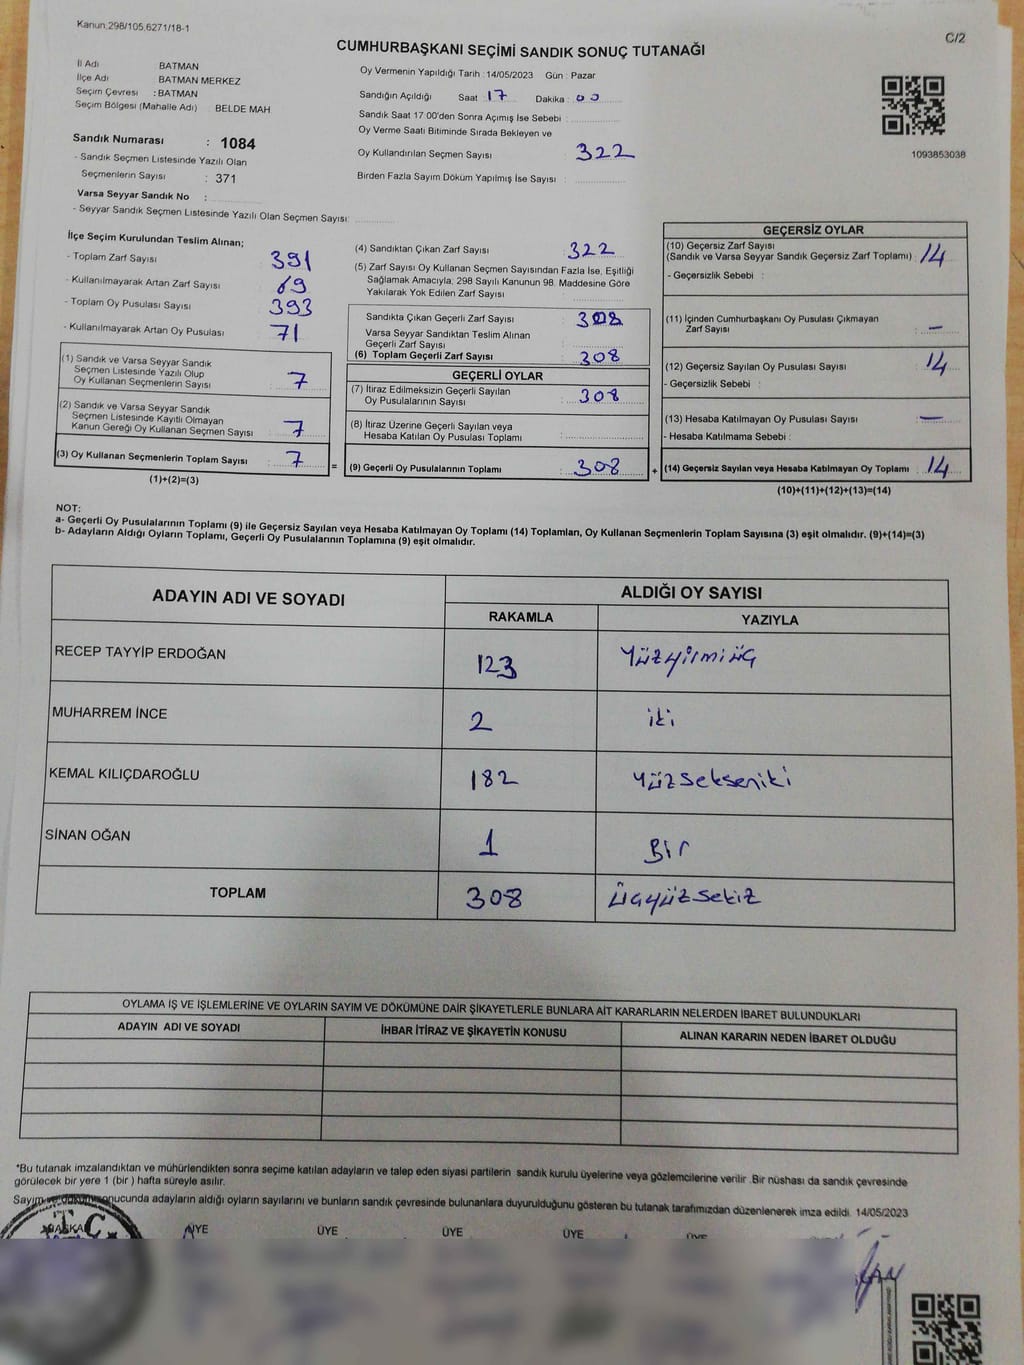 Kanun.298/105,6271/18-1
C/2
CUMHURBAŞKANI SEÇİMİ SANDIK SONUÇ TUTANAĞI
İl Adı BATMAN
İlçe Adı : BATMAN MERKEZ
Seçim Çevresi : BATMAN
Seçim Bölgesi (Mahalle Adı) : BELDE MAH
Sandık Numarası : 1084
- Sandık Seçmen Listesinde Yazılı Olan
Seçmenlerin Sayısı : 371
Varsa Seyyar Sandık No :
- Seyyar Sandık Seçmen Listesinde Yazılı Olan Seçmen Sayısı:
Oy Vermenin Yapıldığı Tarih : 14/05/2023 Gün : Pazar
Sandığın Açıldığı Saat 17 Dakika : 00
Sandık Saat 17 00'den Sonra Açımış İse Sebebi :
Oy Verme Saati Bitiminde Sırada Bekleyen ve
Oy Kullandırılan Seçmen Sayısı : 322
Birden Fazla Sayım Döküm Yapılmış İse Sayısı :
1093853038
İlçe Seçim Kurulundan Teslim Alınan;
- Toplam Zarf Sayısı : 391
- Kullanılmayarak Artan Zarf Sayısı : 69
- Toplam Oy Pusulası Sayısı : 393
- Kullanılmayarak Artan Oy Pusulası : 71
(1) Sandık ve Varsa Seyyar Sandık
Seçmen Listesinde Yazılı Olup
Oy Kullanan Seçmenlerin Sayısı : 7
(2) Sandık ve Varsa Seyyar Sandık
Seçmen Listesinde Kayıtlı Olmayan
Kanun Gereği Oy Kullanan Seçmen Sayısı : 7
(3) Oy Kullanan Seçmenlerin Toplam Sayısı : 7
(1)+(2)=(3)
(4) Sandıktan Çıkan Zarf Sayısı : 322
(5) Zarf Sayısı Oy Kullanan Seçmen Sayısından Fazla İse, Eşitliği
Sağlamak Amacıyla; 298 Sayılı Kanunun 98. Maddesine Göre
Yakılarak Yok Edilen Zarf Sayısı :
Sandıkta Çıkan Geçerli Zarf Sayısı : 308
Varsa Seyyar Sandıktan Teslim Alınan
Geçerli Zarf Sayısı :
(6) Toplam Geçerli Zarf Sayısı : 308
GEÇERLİ OYLAR
(7) İtiraz Edilmeksizin Geçerli Sayılan
Oy Pusulalarının Sayısı : 308
(8) İtiraz Üzerine Geçerli Sayılan veya
Hesaba Katılan Oy Pusulası Toplamı :
= (9) Geçerli Oy Pusulalarının Toplamı : 308 +
GEÇERSİZ OYLAR
(10) Geçersiz Zarf Sayısı
(Sandık ve Varsa Seyyar Sandık Geçersiz Zarf Toplamı) : 14
- Geçersizlik Sebebi :
(11) İçinden Cumhurbaşkanı Oy Pusulası Çıkmayan
Zarf Sayısı : —
(12) Geçersiz Sayılan Oy Pusulası Sayısı : 14
- Geçersizlik Sebebi :
(13) Hesaba Katılmayan Oy Pusulası Sayısı : —
- Hesaba Katılmama Sebebi :
(14) Geçersiz Sayılan veya Hesaba Katılmayan Oy Toplamı : 14
(10)+(11)+(12)+(13)=(14)
NOT:
a- Geçerli Oy Pusulalarının Toplamı (9) ile Geçersiz Sayılan veya Hesaba Katılmayan Oy Toplamı (14) Toplamları, Oy Kullanan Seçmenlerin Toplam Sayısına (3) eşit olmalıdır. (9)+(14)=(3)
b- Adayların Aldığı Oyların Toplamı, Geçerli Oy Pusulalarının Toplamına (9) eşit olmalıdır.
ADAYIN ADI VE SOYADI ALDIĞI OY SAYISI
RAKAMLA YAZIYLA
RECEP TAYYİP ERDOĞAN 123 Yüzyirmiüç
MUHARREM İNCE 2 iki
KEMAL KILIÇDAROĞLU 182 Yüzsekseniki
SİNAN OĞAN 1 Bir
TOPLAM 308 Üçyüzsekiz
OYLAMA İŞ VE İŞLEMLERİNE VE OYLARIN SAYIM VE DÖKÜMÜNE DAİR ŞİKAYETLERLE BUNLARA AİT KARARLARIN NELERDEN İBARET BULUNDUKLARI
ADAYIN ADI VE SOYADI İHBAR İTİRAZ VE ŞİKAYETİN KONUSU ALINAN KARARIN NEDEN İBARET OLDUĞU
*Bu tutanak imzalandıktan ve mühürlendikten sonra seçime katılan adayların ve talep eden siyasi partilerin sandık kurulu üyelerine veya gözlemcilerine verilir .Bir nüshası da sandık çevresinde
görülecek bir yere 1 (bir ) hafta süreyle asılır.
Sayım ve döküm sonucunda adayların aldığı oyların sayılarını ve bunların sandık çevresinde bulunanlara duyurulduğunu gösteren bu tutanak tarafımızdan düzenlenerek imza edildi. 14/05/2023
T.C.
BAŞKAN ÜYE ÜYE ÜYE ÜYE ÜYE